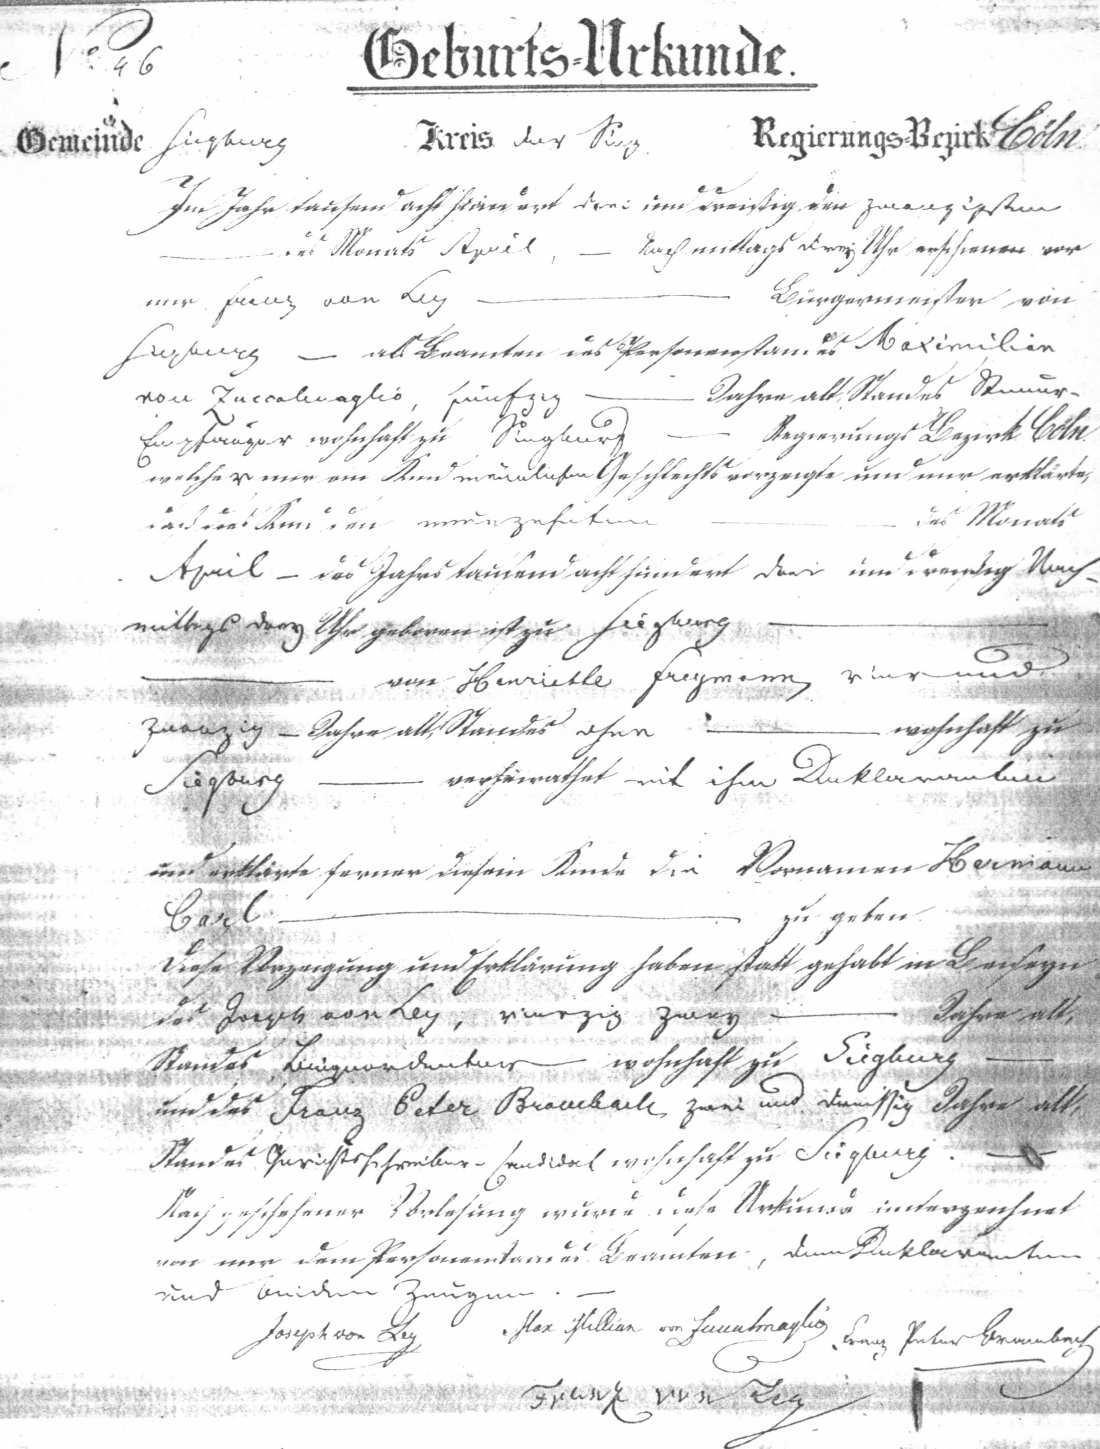 No 46
Geburts-Urkunde.
Gemeinde Siegburg Kreis der Sieg Regierungs-Bezirk Cöln
Im Jahr tausend acht hundert drei und dreißig den zwanzigsten
des Monats April, — Nachmittags drey Uhr erschienen vor
mir Franz von Ley — Bürgermeister von
Siegburg — als Beamten des Personenstandes Maximilian
von Zuccalmaglio, fünfzig — Jahre alt, Standes Steuer-
Empfänger wohnhaft zu Siegburg — Regierungs Bezirk Cöln
welcher mir ein Kind männlichen Geschlechts vorzeigte und mir erklärte,
daß dies Kind den neunzehnten — des Monats
April — des Jahrs tausend acht hundert drei und dreißig Nach-
mittags drey Uhr geboren ist zu Siegburg —
— von Henriette Freymann, vier und
zwanzig — Jahre alt, Standes ohne — wohnhaft zu
Siegburg — verheirathet mit ihm Deklaranten
und erklärte ferner diesem Kinde die Vornamen Hermann
Carl — zu geben.
Diese Vorzeigung und Erklärung haben statt gehabt in Beiseyn
des Joseph von Ley, vierzig zwey — Jahre alt,
Standes Beigeordneter — wohnhaft zu Siegburg —
und des Franz Peter Brambach, zwei und dreissig Jahre alt,
Standes Gerichtsschreiber-Candidat wohnhaft zu Siegburg. —
Nach geschehener Vorlesung wurde diese Urkunde unterzeichnet
von mir dem Personenstandes Beamten, dem Deklaranten
und beiden Zeugen. —
Joseph von Ley Maximilian von Zuccalmaglio Franz Peter Brambach
Franz von Ley